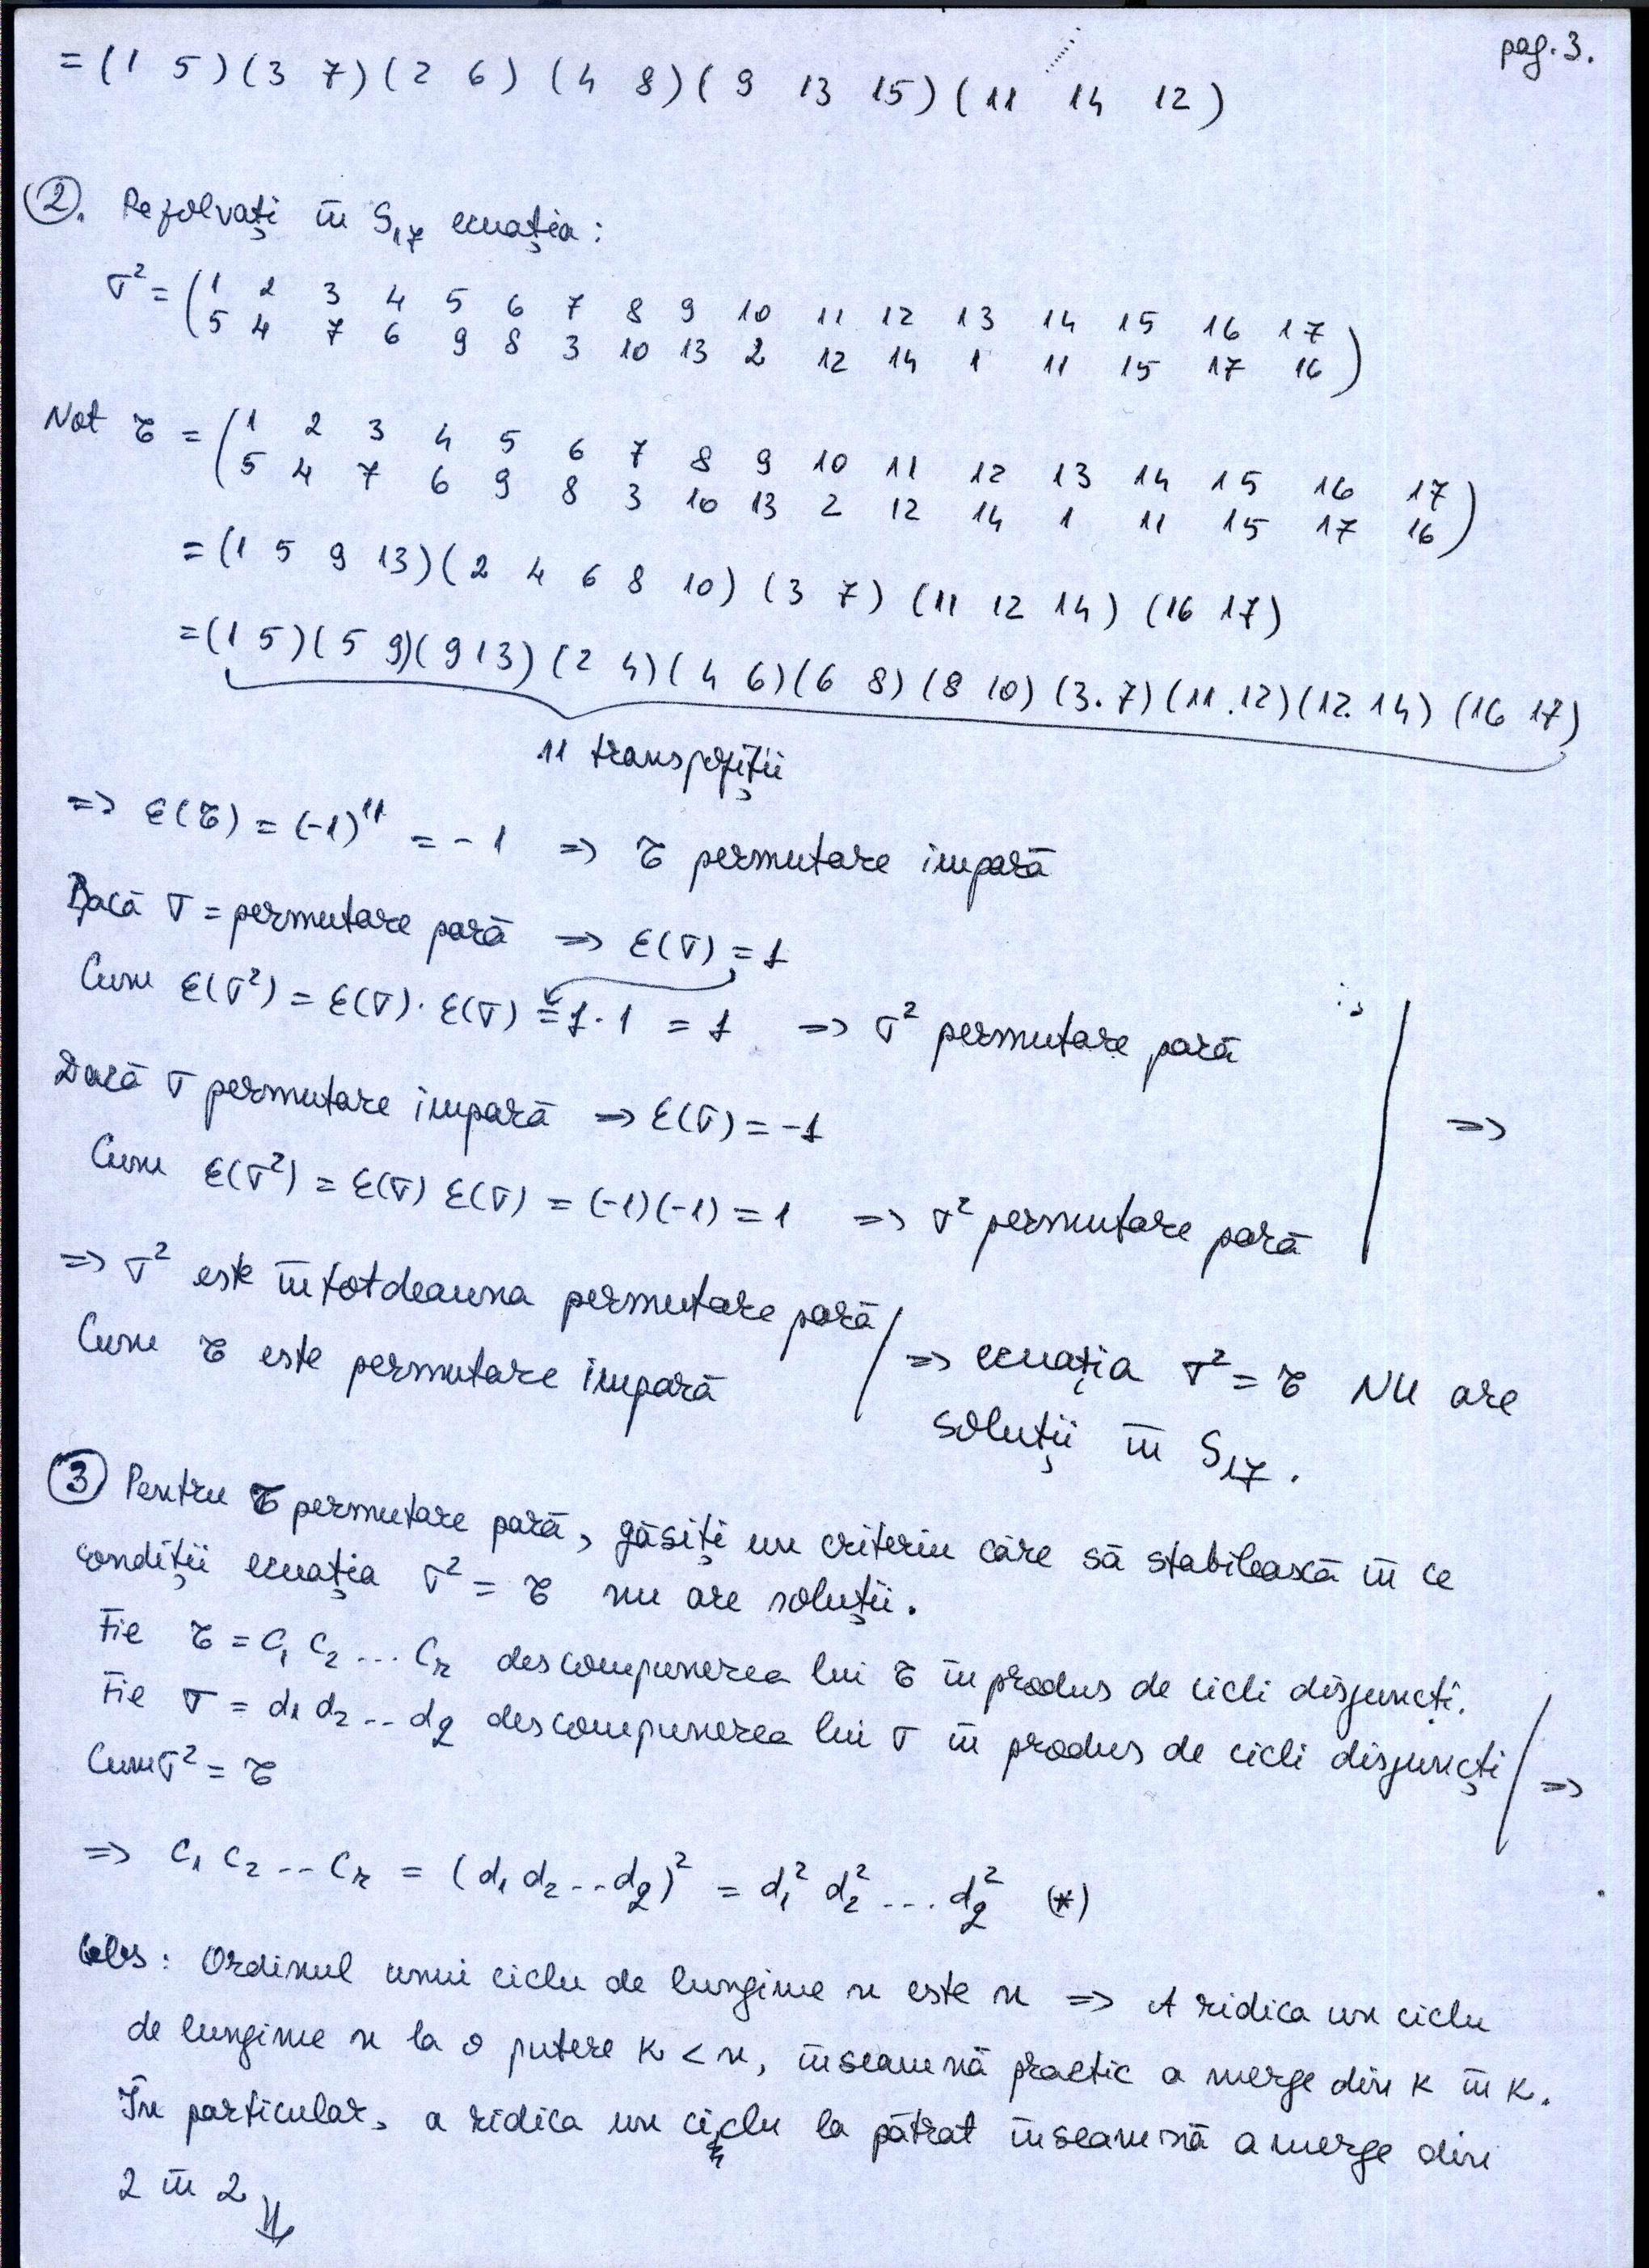 pag. 3.
= (1 5)(3 7)(2 6)(4 8)(9 13 15)(11 14 12)
2. Rezolvați în S₁₇ ecuația:
σ² = (1 2 3 4 5 6 7 8 9 10 11 12 13 14 15 16 17
5 4 7 6 9 8 3 10 13 2 12 14 1 11 15 17 16)
Not τ = (1 2 3 4 5 6 7 8 9 10 11 12 13 14 15 16 17
5 4 7 6 9 8 3 10 13 2 12 14 1 11 15 17 16)
= (1 5 9 13)(2 4 6 8 10)(3 7)(11 12 14)(16 17)
= (1 5)(5 9)(9 13)(2 4)(4 6)(6 8)(8 10)(3 7)(11 12)(12 14)(16 17)
11 transpoziții
=> ε(τ) = (-1)¹¹ = -1 => τ permutare impară
Dacă σ = permutare pară => ε(σ) = 1
Cum ε(σ²) = ε(σ)·ε(σ) = 1·1 = 1 => σ² permutare pară
Dacă σ permutare impară => ε(σ) = -1 =>
Cum ε(σ²) = ε(σ) ε(σ) = (-1)(-1) = 1 => σ² permutare pară
=> σ² este întotdeauna permutare pară
Cum τ este permutare impară => ecuația σ² = τ NU are
soluții în S₁₇.
3 Pentru τ permutare pară, găsiți un criteriu care să stabilească în ce
condiții ecuația σ² = τ nu are soluții.
Fie τ = C₁ C₂ ... Cr descompunerea lui τ în produs de cicli disjuncți.
Fie σ = d₁ d₂ .. dq descompunerea lui σ în produs de cicli disjuncți
Cum σ² = τ =>
=> C₁ C₂ -- Cr = (d₁ d₂ .. dq)² = d₁² d₂² ... dq² (*)
Obs: Ordinul unui ciclu de lungime n este n => A ridica un ciclu
de lungime n la o putere k < n, înseamnă practic a merge din k în k.
În particular, a ridica un ciclu la pătrat înseamnă a merge din
2 în 2 ⇓